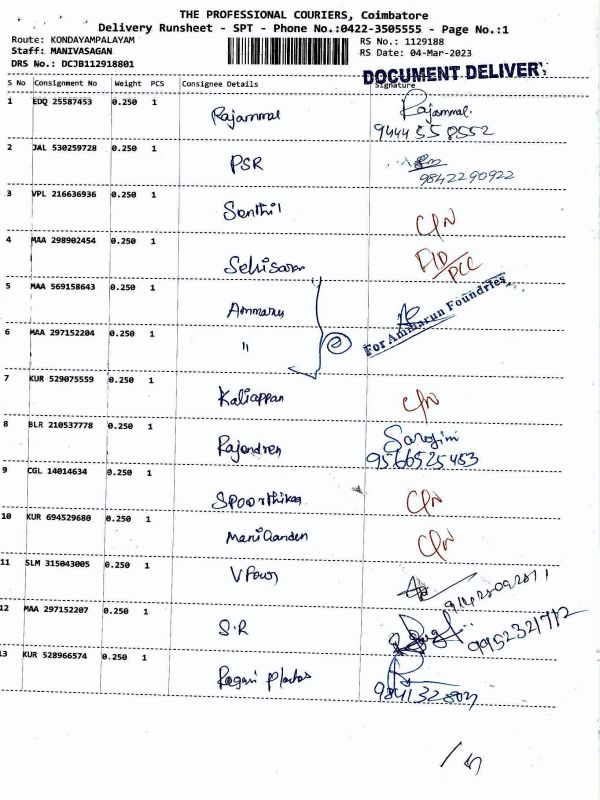 THE PROFESSIONAL COURIERS, Coimbatore
Delivery Runsheet - SPT - Phone No.:0422-3505555 - Page No.:1
Route: KONDAYAMPALAYAM
Staff: MANIVASAGAN
DRS No.: DCJB112918801
RS No.: 1129188
RS Date: 04-Mar-2023
DOCUMENT DELIVERY
S No Consignment No Weight PCS Consignee Details Signature
1 EDQ 25587453 0.250 1 Rajammal Rajammal.
9444358552
2 JAL 530259728 0.250 1 PSR
9842290922
3 VPL 216636936 0.250 1 Senthil C/N
4 MAA 298902454 0.250 1 Sehisaran FID/PCC
5 MAA 569158643 0.250 1 Ammarun
For Ammarun Foundries
6 MAA 297152204 0.250 1 " 2
7 KUR 529075559 0.250 1 Kaliappan C/N
8 BLR 210537778 0.250 1 Rajendren Sarojini
9566525453
9 CGL 14014634 0.250 1 Spoorthikaa C/N
10 KUR 694529680 0.250 1 Manikanden C/N
11 SLM 315043005 0.250 1 V Power
12 MAA 297152207 0.250 1 S.R 9952321712
13 KUR 528966574 0.250 1 Ragavi